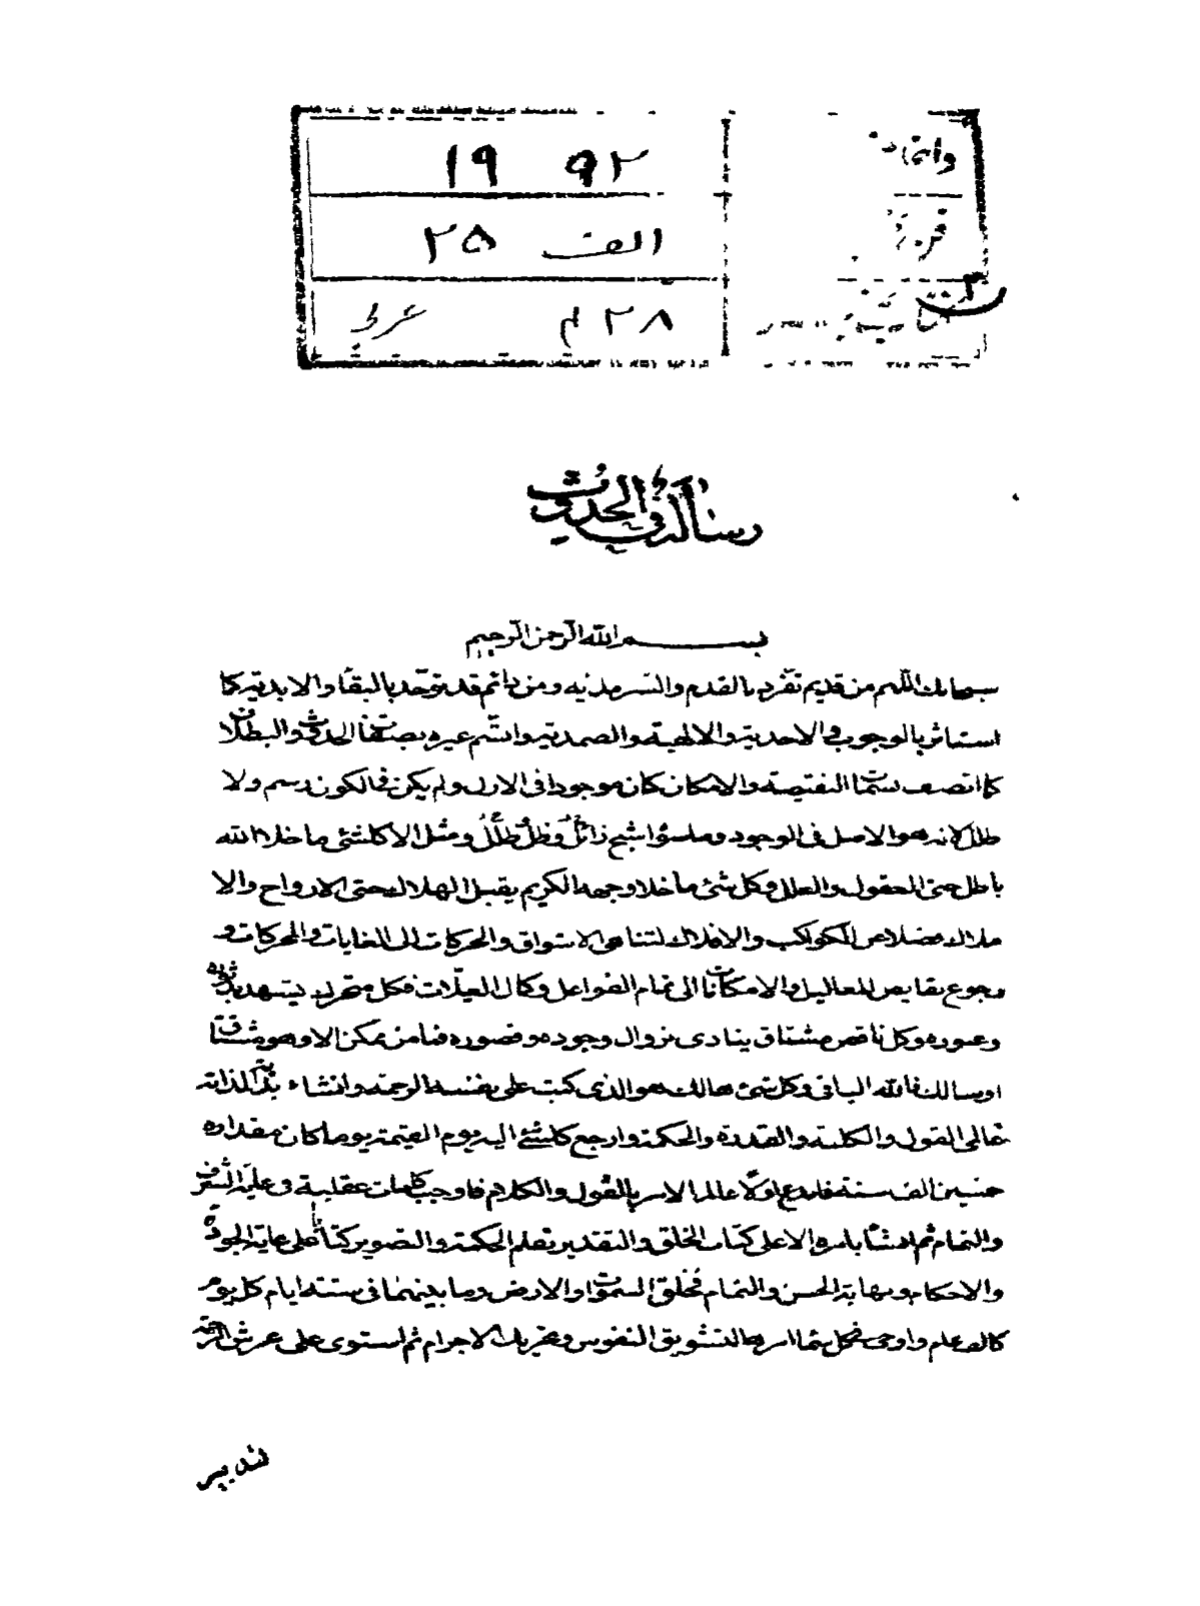 ۱۹ ۹۲
الف ۲۵
۲۸ م عربي
رسالة في الحدوث
بسم الله الرحمن الرحيم
سبحانك اللهم من قديم تفرد بالقدم والسرمدية ومن دائم قد توحد بالبقا والابدية كما
استاثر بالوجوب في الاحدية والالهية والصمدية واتسم غيره بصفتى الحدوث والبطلان
كما اتصف بسمات النقيصة والامكان كان موجودا فى الازل ولم يكن فى الكون رسم ولا
طلل لانه هو الاصل فى الوجود وما سواه شبح زائل وظل طلل ومثل الا كلشئ ما خلا الله
باطل حتى العقول والعلل وكل شئ ما خلا وجهه الكريم يقبل الهلاك حتى الارواح والا
ملاك فضلا عن الكواكب والافلاك لتناهى الاشواق والحركات الى الغايات والمحركات و
رجوع نقايص المعاليل والامكانات الى تمام الفواعل وكمال العلات فكل متحرك يشهد بدثوره
وعبوره وكل ناقص مشتاق ينادى بزوال وجوده وقصوره فما من ممكن الا وهو مشتاق
او سالك فالله الباقى وكل شئ هالك هو الذى كتب على نفسه الرحمة وانشاء بذاته لذاته
عالمى القول والكلمة والقدرة والحكمة وارجع كلشئ اليه يوم القيمة يوما كان مقداره
خمسين الف سنة فابدع اولا عالم الامر بالقول والكلام فاوجب كلمات عقلية فى غاية الشرف
والتمام ثم انشأ بامره الاعلى كتاب الخلق والتقدير بقلم الحكمة والتصوير كتابا على غاية الجودة
والاحكام ونهاية الحسن والتمام فخلق السموات والارض وما بينهما فى ستة ايام كل يوم
كالف عام واوحى فى كل سماء امرها لتشويق النفوس وتحريك الاجرام ثم استوى على عرش الرحمة
لتدبير